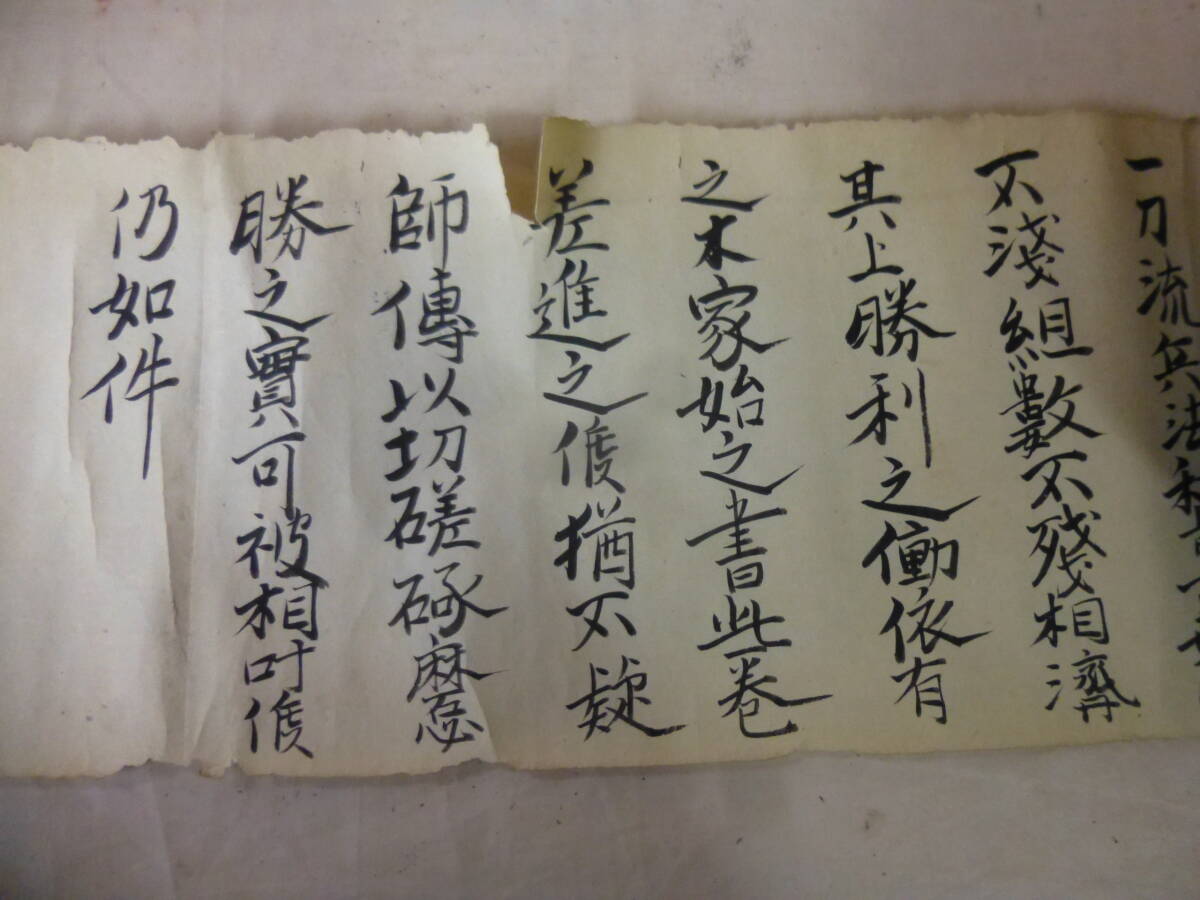 一刀流兵法稽古
不淺組數不殘相濟
其上勝利之働依有
之木家始之書此卷
差進之候猶不疑
師傳以切磋琢磨必
勝之實可被相叶候
仍如件